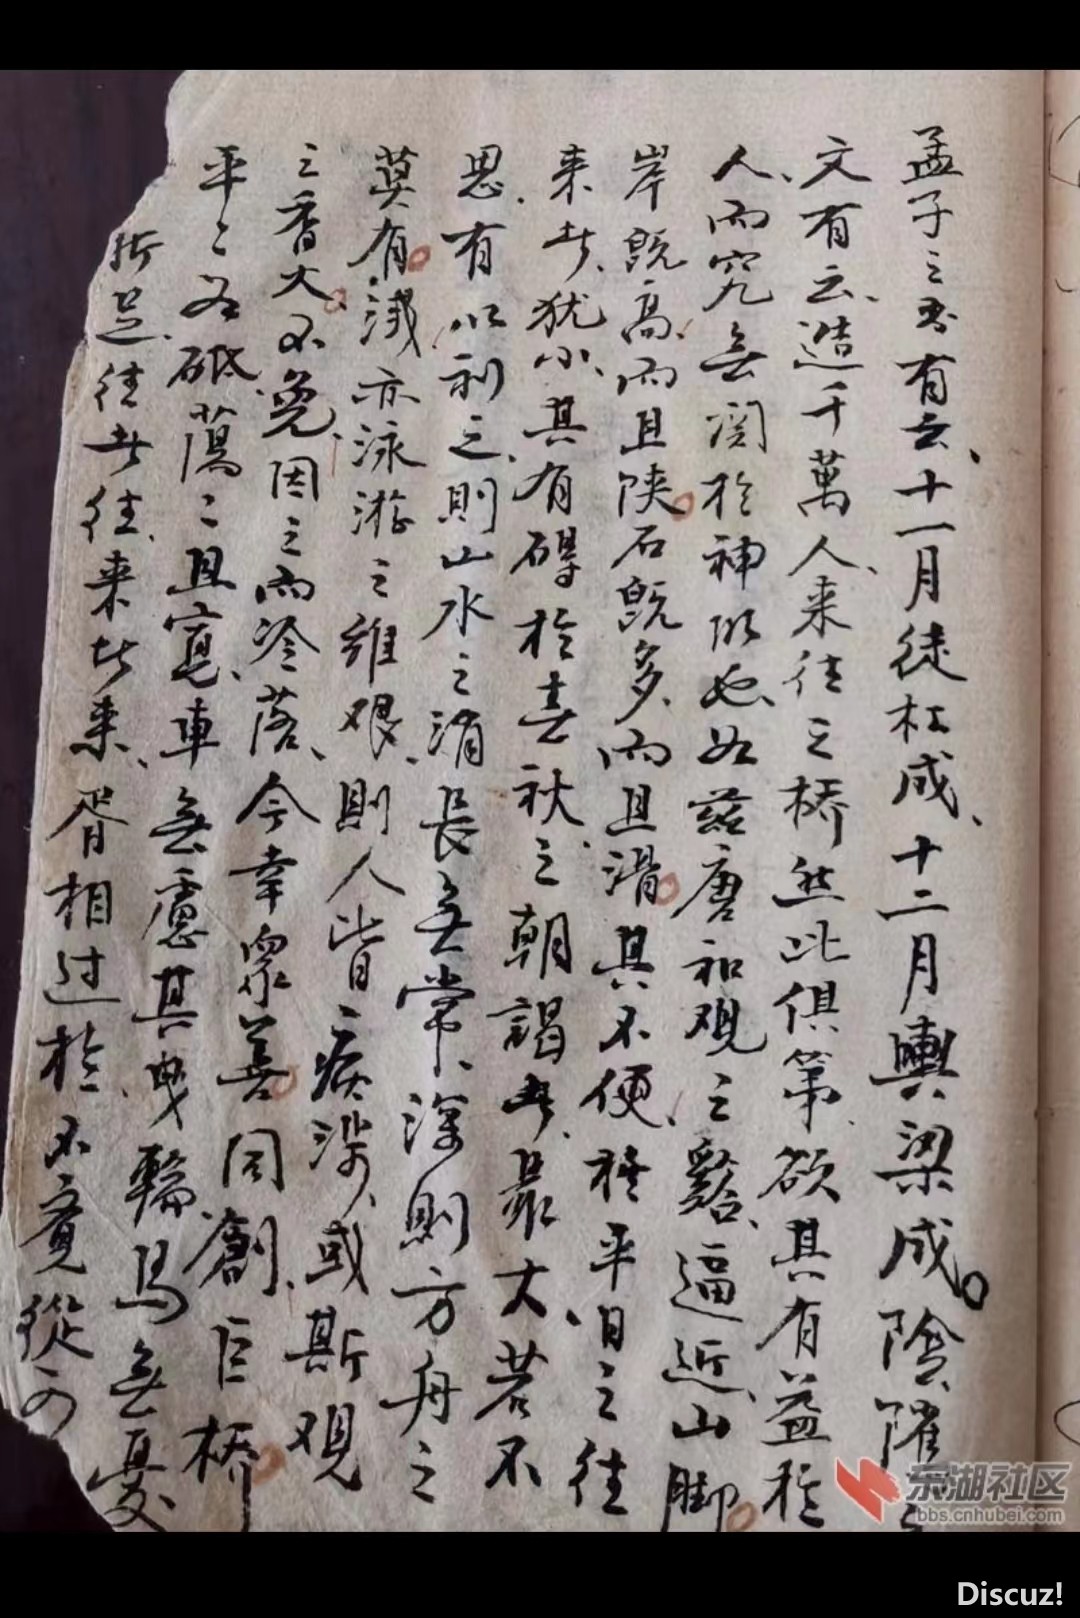 孟子之書有云十一月徒杠成十二月輿梁成陰隲之
文有云造千萬人来往之橋然此俱第欲其有益於
人而究無関於神明也如兹唐和观之谿逼近山脚
岸既高而且陕石既多而且滑其不便於平日之往
来者犹小其有碍於春秋之朝謁者最大若不
思有以利之則山水之消長無常深則方舟之
莫有淺亦泳游之維艰則人皆病涉或斯观
之香火不免因之而冷落今幸眾善同創巨橋
平平如砥蕩蕩且寬車無慮其曳輪馬無憂
折足往者往来者来胥相过於不覺從
东湖社区
bbs.cnhubei.com
Discuz!